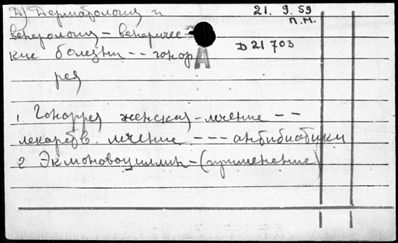 Д) Дерматология и
21. 9. 59
п.м.
венерология - венеричес-
кие болезни - - гонор
Д 21703
А
рея
1 Гоноррея женская - лечение - -
лекарств. лечение - - - антибиотики
2 Экмоновоциллин - (применение)